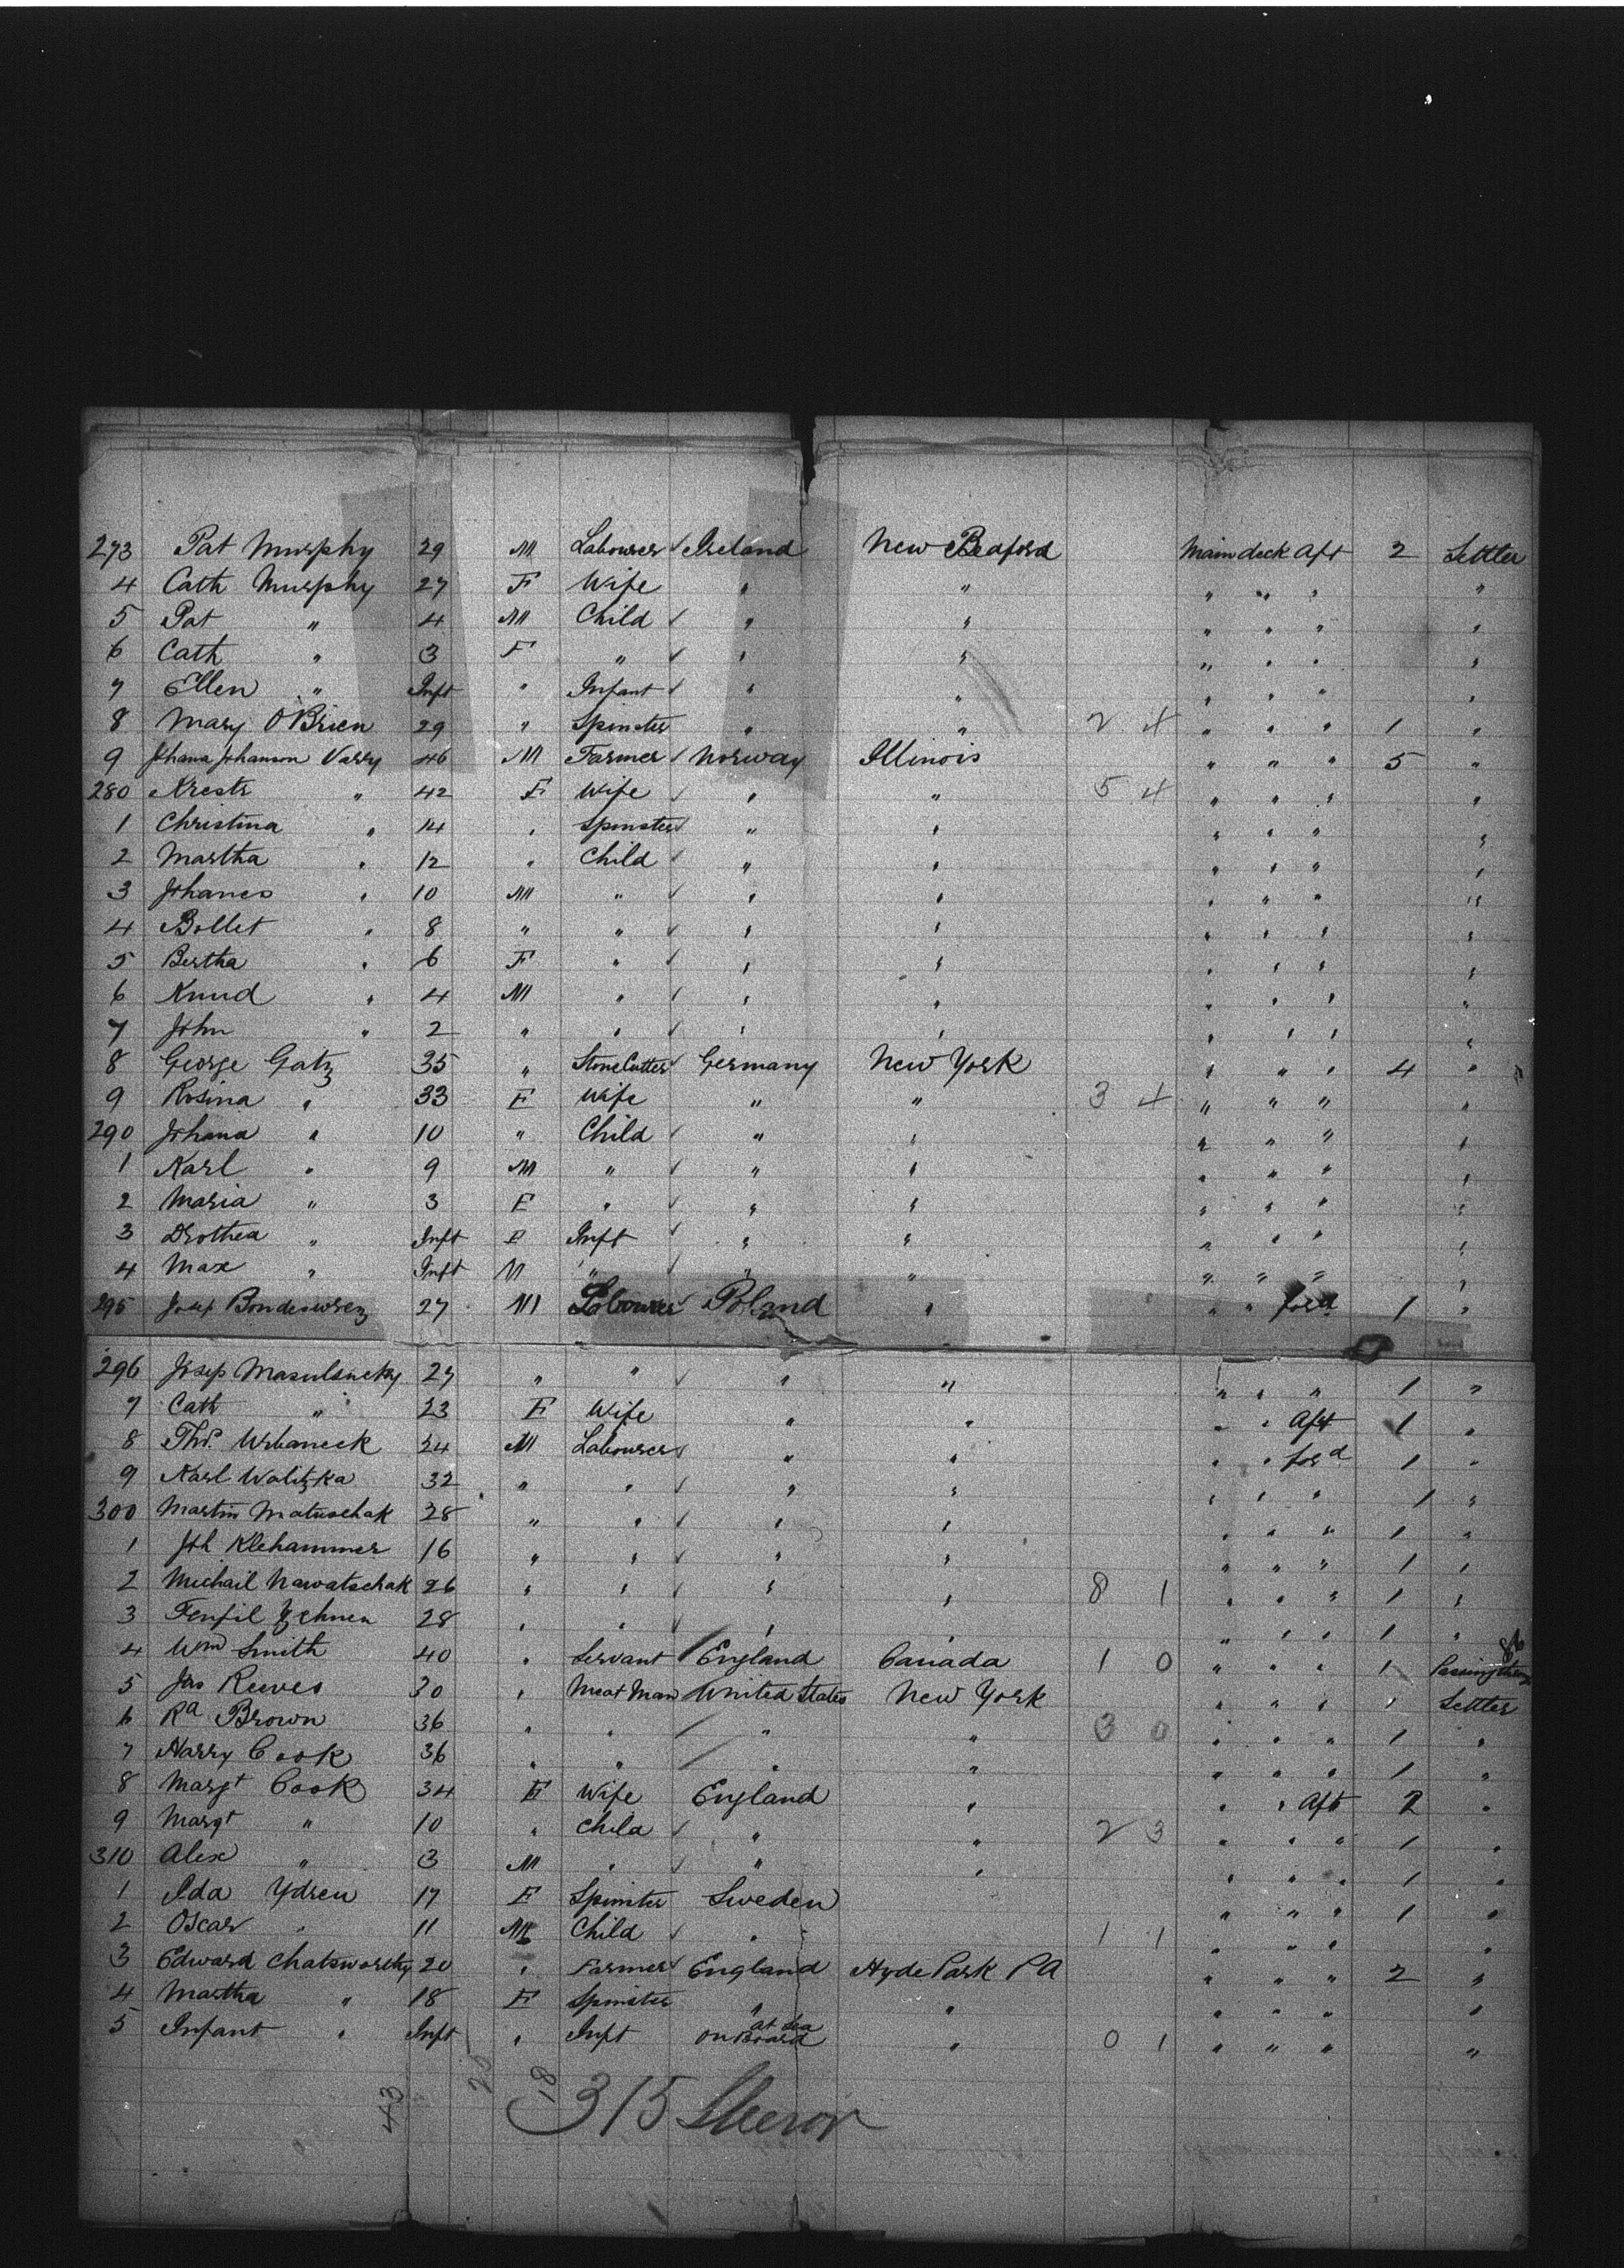 273 Pat Murphy 29 M Labourer Ireland New Bedford Main deck Aft 2 Settler
4 Cath Murphy 27 F Wife " " " " " "
5 Pat " 4 M Child " " " " " "
6 Cath " 3 F " " " " " " "
7 Ellen " Inft " Infant " " " " " "
8 Mary O'Brien 29 " Spinster " " 2 4 " " " 1 "
9 Johana Johanson Varry 46 M Farmer Norway Illinois " " " 5 "
280 Krestr " 42 F Wife " " 5 4 " " " "
1 Christina " 14 " Spinster " " " " " "
2 Martha " 12 " Child " " " " " "
3 Johanes " 10 M " " " " " " "
4 Bollet " 8 " " " " " " " "
5 Bertha " 6 F " " " " " " "
6 Knud " 4 M " " " " " " "
7 John " 2 " " " " " " " "
8 George Gatz 35 " Stone Cutter Germany New York " " " 4 "
9 Rosina " 33 F Wife " " 3 4 " " " "
290 Johana " 10 " Child " " " " " "
1 Karl " 9 M " " " " " " "
2 Maria " 3 F " " " " " " "
3 Drothea " Inft F Inft " " " " " "
4 Max " Inft M " " " " " " "
295 Josep Bondeswrez 27 M Labourer Poland " " " ford 1 "
296 Josep Masulsncky 27 " " " " " " " 1 "
7 Cath " 23 F Wife " " " " Aft 1 "
8 Thos. Urbaneck 24 M Labourer " " " " ford 1 "
9 Karl Walitzka 32 " " " " " " " 1 "
300 Martin Matuschak 28 " " " " " " " 1 "
1 Joh Klehammer 16 " " " " " " " 1 "
2 Michail Nawatschak 26 " " " " 8 1 " " " 1 "
3 28 " " " " " " " 1 "
4 Wm Smith 40 " Servant England Canada 1 0 " " " 1 Passing through
5 Jas Reeves 30 " Meat Man United States New York " " " " Settler
6 Rd Brown 36 " " " " 3 0 " " " 1 "
7 Harry Cook 36 " " " " " " " 1 "
8 Margt Cook 34 F Wife England " " " Aft 2 "
9 Margt " 10 " Child " " 2 3 " " " 1 "
310 Alex " 3 M " " " " " " 1 "
1 Ida Ydren 17 F Spinster Sweden " " " 1 "
2 Oscar " 11 M Child " 1 1 " " " "
3 Edward Chatsworthy 20 " Farmer England Hyde Park PA " " " 2 "
4 Martha " 18 F Spinster " " " " " "
5 Infant " Inft " Inft on Board at Sea " 0 1 " " " "
43 25 18
315